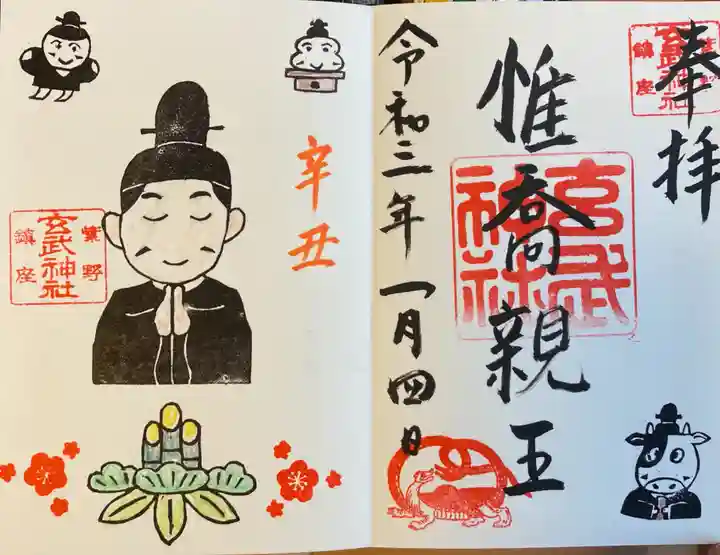 奉拝
惟喬親王
令和三年一月四日
玄武神社
紫野
玄武神社
鎮座
辛丑
紫野
玄武神社
鎮座